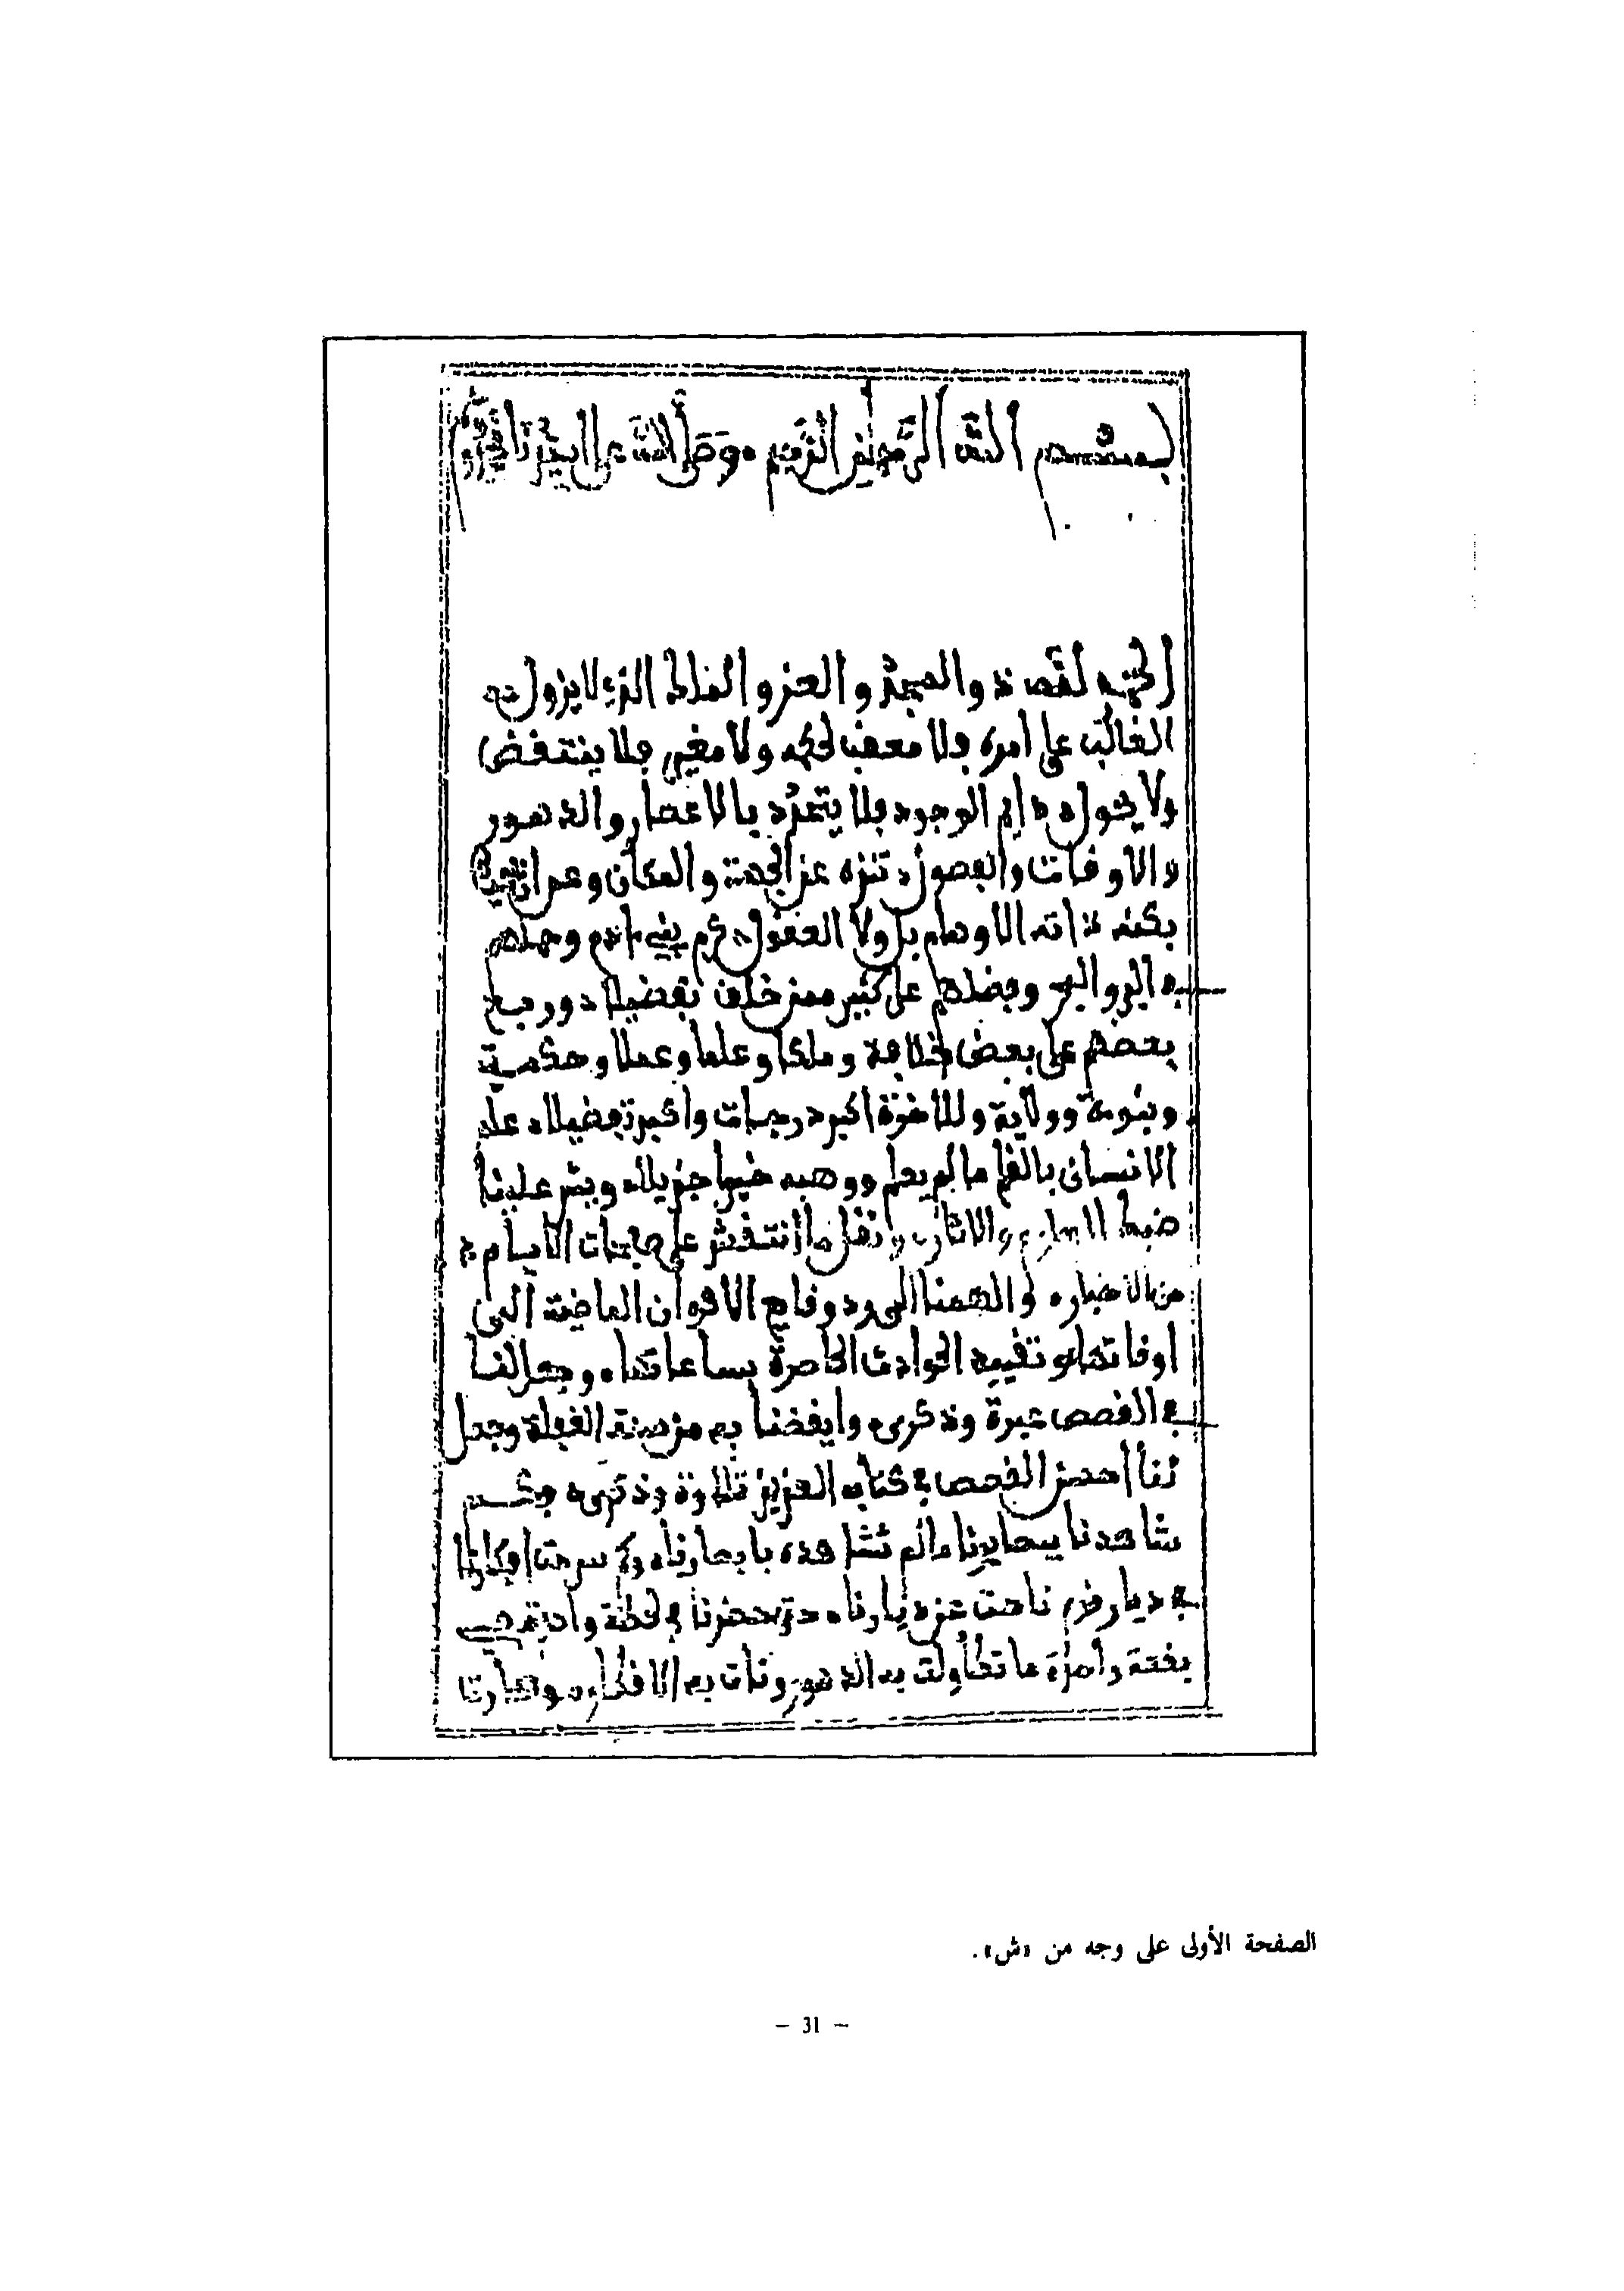 بسم الله الرحمن الرحيم وصلى الله على سيدنا محمد
الحمد لله ذي المجد والعز والملك الذي لا يزول
الغالب على أمره فلا معقب لحكمه ولا مغير فلا ينتقض
ولا يحول دايم الوجود فلا يتحدد بالاعصار والدهور
والاوقات والفصول تنزه عن الجهة والمكان وعن ان تحيط
بكنه ذاته الاوهام بل ولا العقول كرم بني ءادم وحملهم
في البر والبحر وفضلهم على كثير ممن خلق تفضيلا ورفع
بعضهم على بعض خلافة وملكا وعلما وعملا وحكمة
ونبوءة وولاية وللاخرة اكبر درجات واكبر تفضيلا علم
الانسان بالقلم ما لم يعلم ووهبه خيرا جزيلا ويسر علينا
ضبط التاريخ والاثار ونقل ما انتقش على صفحات الايام
من الاخبار والهمنا الى رد وقايع الاقران الماضية الى
اوقاتها وتقييد الحوادث الحاضرة بساعاتها وجعل لنا
في القصص عبرة وذكرى وايقضنا به من سنة الغفلة وجعل
لنا احسن القصص في كتابه العزيز تلاوة وذكرى فكم
شاهدنا ببصايرنا ما لم نشاهده بابصارنا وكم سرحت افكارنا
في ديار قوم ناحت عن ديارنا حتى حضرنا في لحظة واحدة
بغتة ما تطاولت به الدهور ونات به الاقطار وصارت
الصفحة الأولى على وجه من «ش».
– 31 –